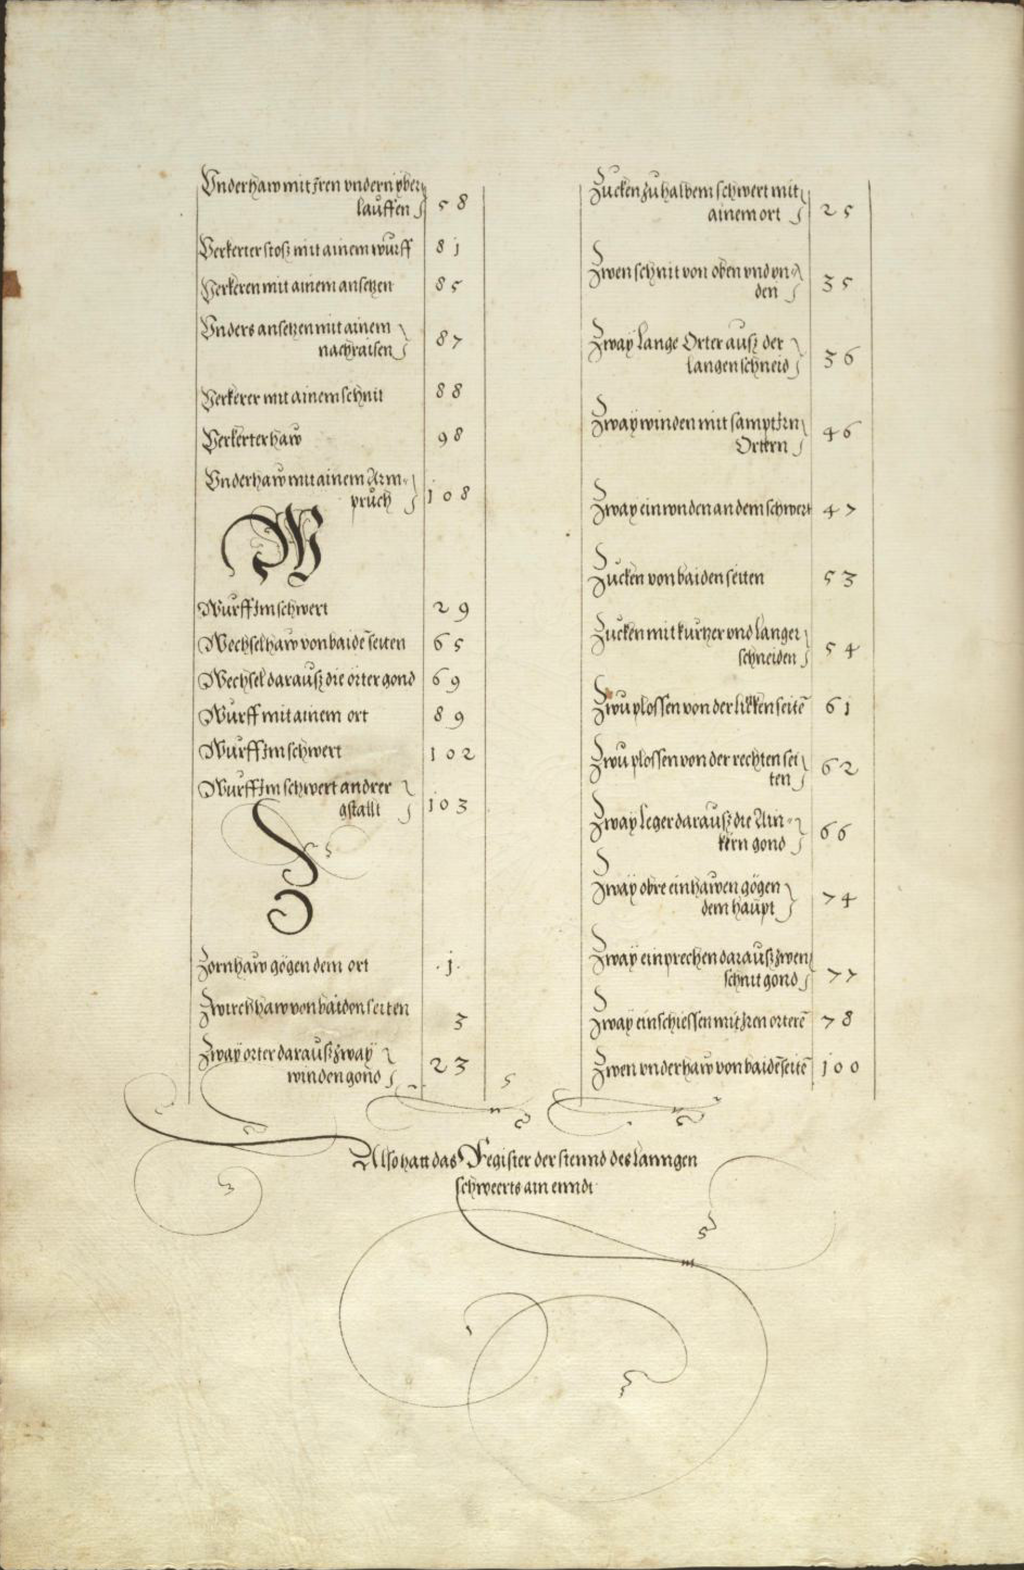 Underhaw mit Iren undern yber
lauffen 58
Verkerter stoß mit ainem wurff 81
Verkeren mit ainem ansetzen 85
Unders ansetzen mit ainem
nachraisen 87
Verkerer mit ainem schnit 88
Verkerter haw 98
Underhaw mit ainem Arm-
pruch 108
W
Wurff Im schwert 29
Wechselhaw von baidē seiten 65
Wechsel darauß die örter gond 69
Wurff mit ainem ort 89
Wurff Im schwert 102
Wurff Im schwert andrer
gstallt 103
Z
Zornhaw gögen dem ort 1
Zwirchhaw von baiden seiten 3
Zway orter darauß zway
winden gond 23
Zucken zu halbem schwert mit
ainem ort 25
Zwen schnit von oben und un-
den 35
Zway Lange Orter auß der
langen schneid 36
Zway winden mit sampt Irn
Ortern 46
Zway einwinden an dem schwert 47
Zucken von baiden seiten 53
Zucken mit kurtzer und langer
schneiden 54
Zwu plossen von der lincken seitē 61
Zwu plossen von der rechten sei
ten 62
Zway leger darauß die
gond 66
Zway obre einhawen gögen
dem haupt 74
Zway einprechen darauß zwen
schnit gond 77
Zway einschiessen mit Iren orterē 78
Zwen underhaw von baidē seitē 100
Also hatt das Register der stennd des lanngen
schweerts ain enndt